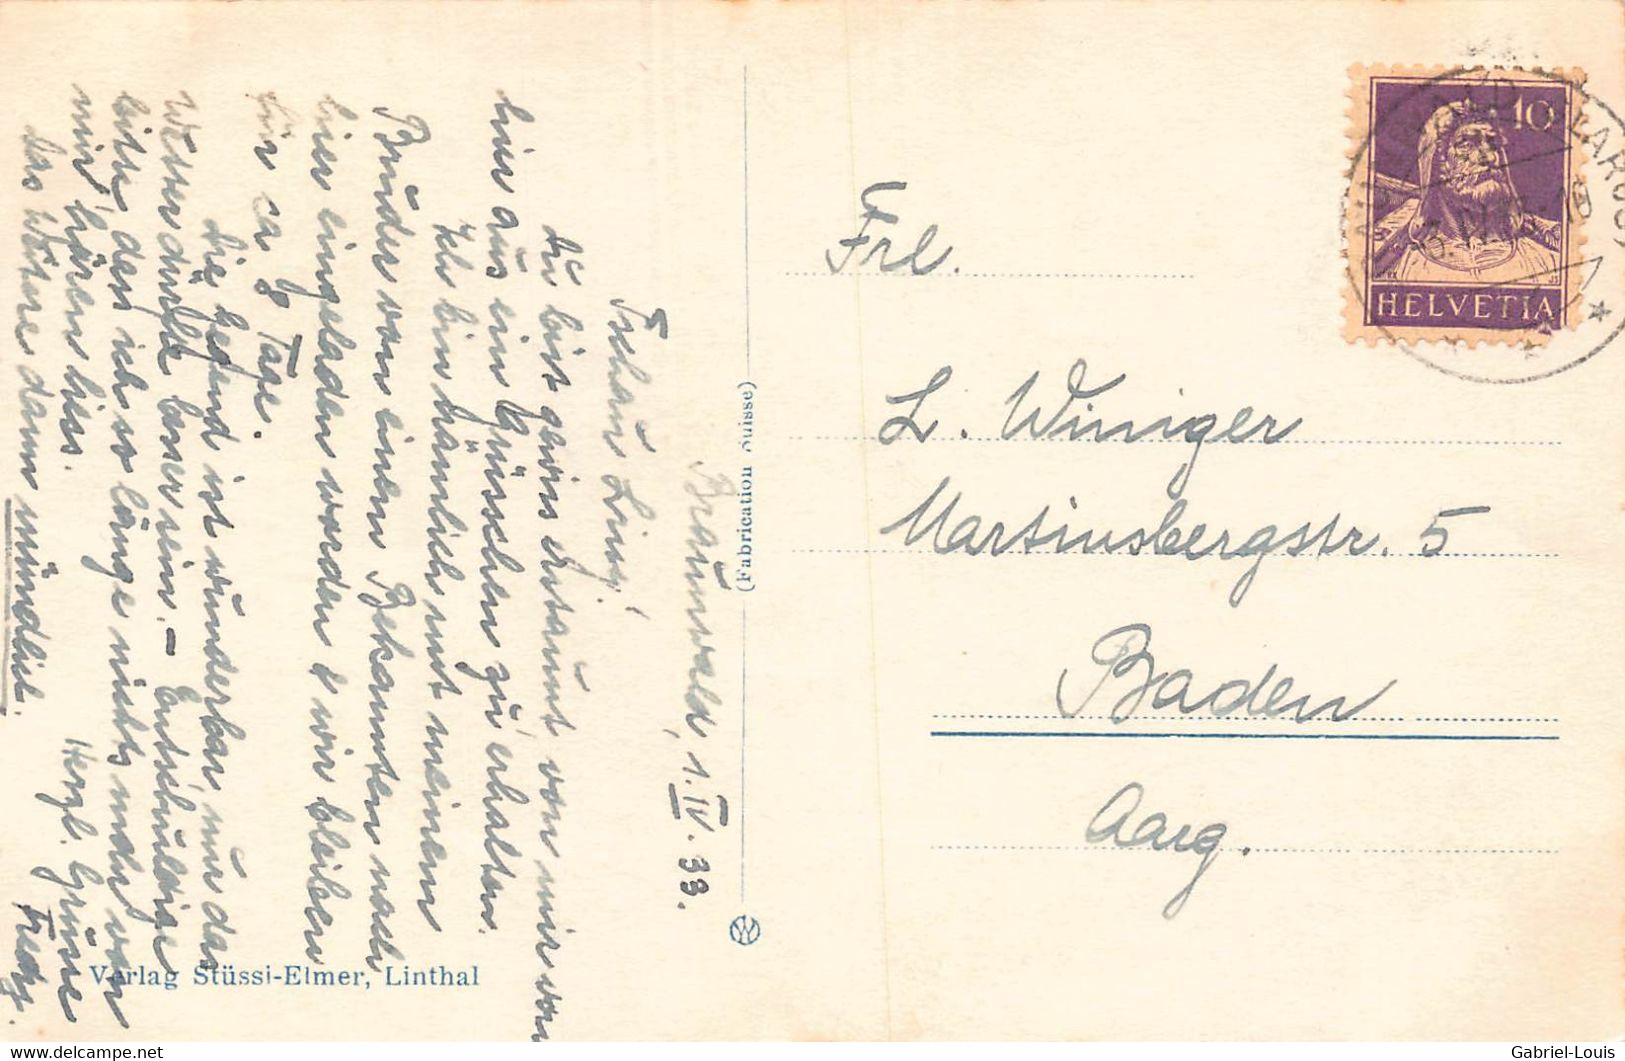 Braunwald, 1.IV.33.
Tschau Lissy!
Du bist gewiss erstaunt, von mir von
hier aus ein Grüsschen zu erhalten.
Ich bin nämlich mit meinem
Bruder von einem Bekannten nach
hier eingeladen worden & wir bleiben
hir ca 8 Tage.
Die Gegend ist wunderbar, nur das
Wetter dürfte besser sein. – Entschuldige
bitte dass ich so lange nichts mehr von
mir hören liess.
Das Weitere dann mündlich.
Herzl. Grüsse
Fredy.
Verlag Stüssi-Elmer, Linthal
(Fabrication Suisse)
W
10
HELVETIA
Frl.
L. Winiger
Martinsbergstr. 5
Baden
Aarg.
www.delcampe.net
Gabriel-Louis